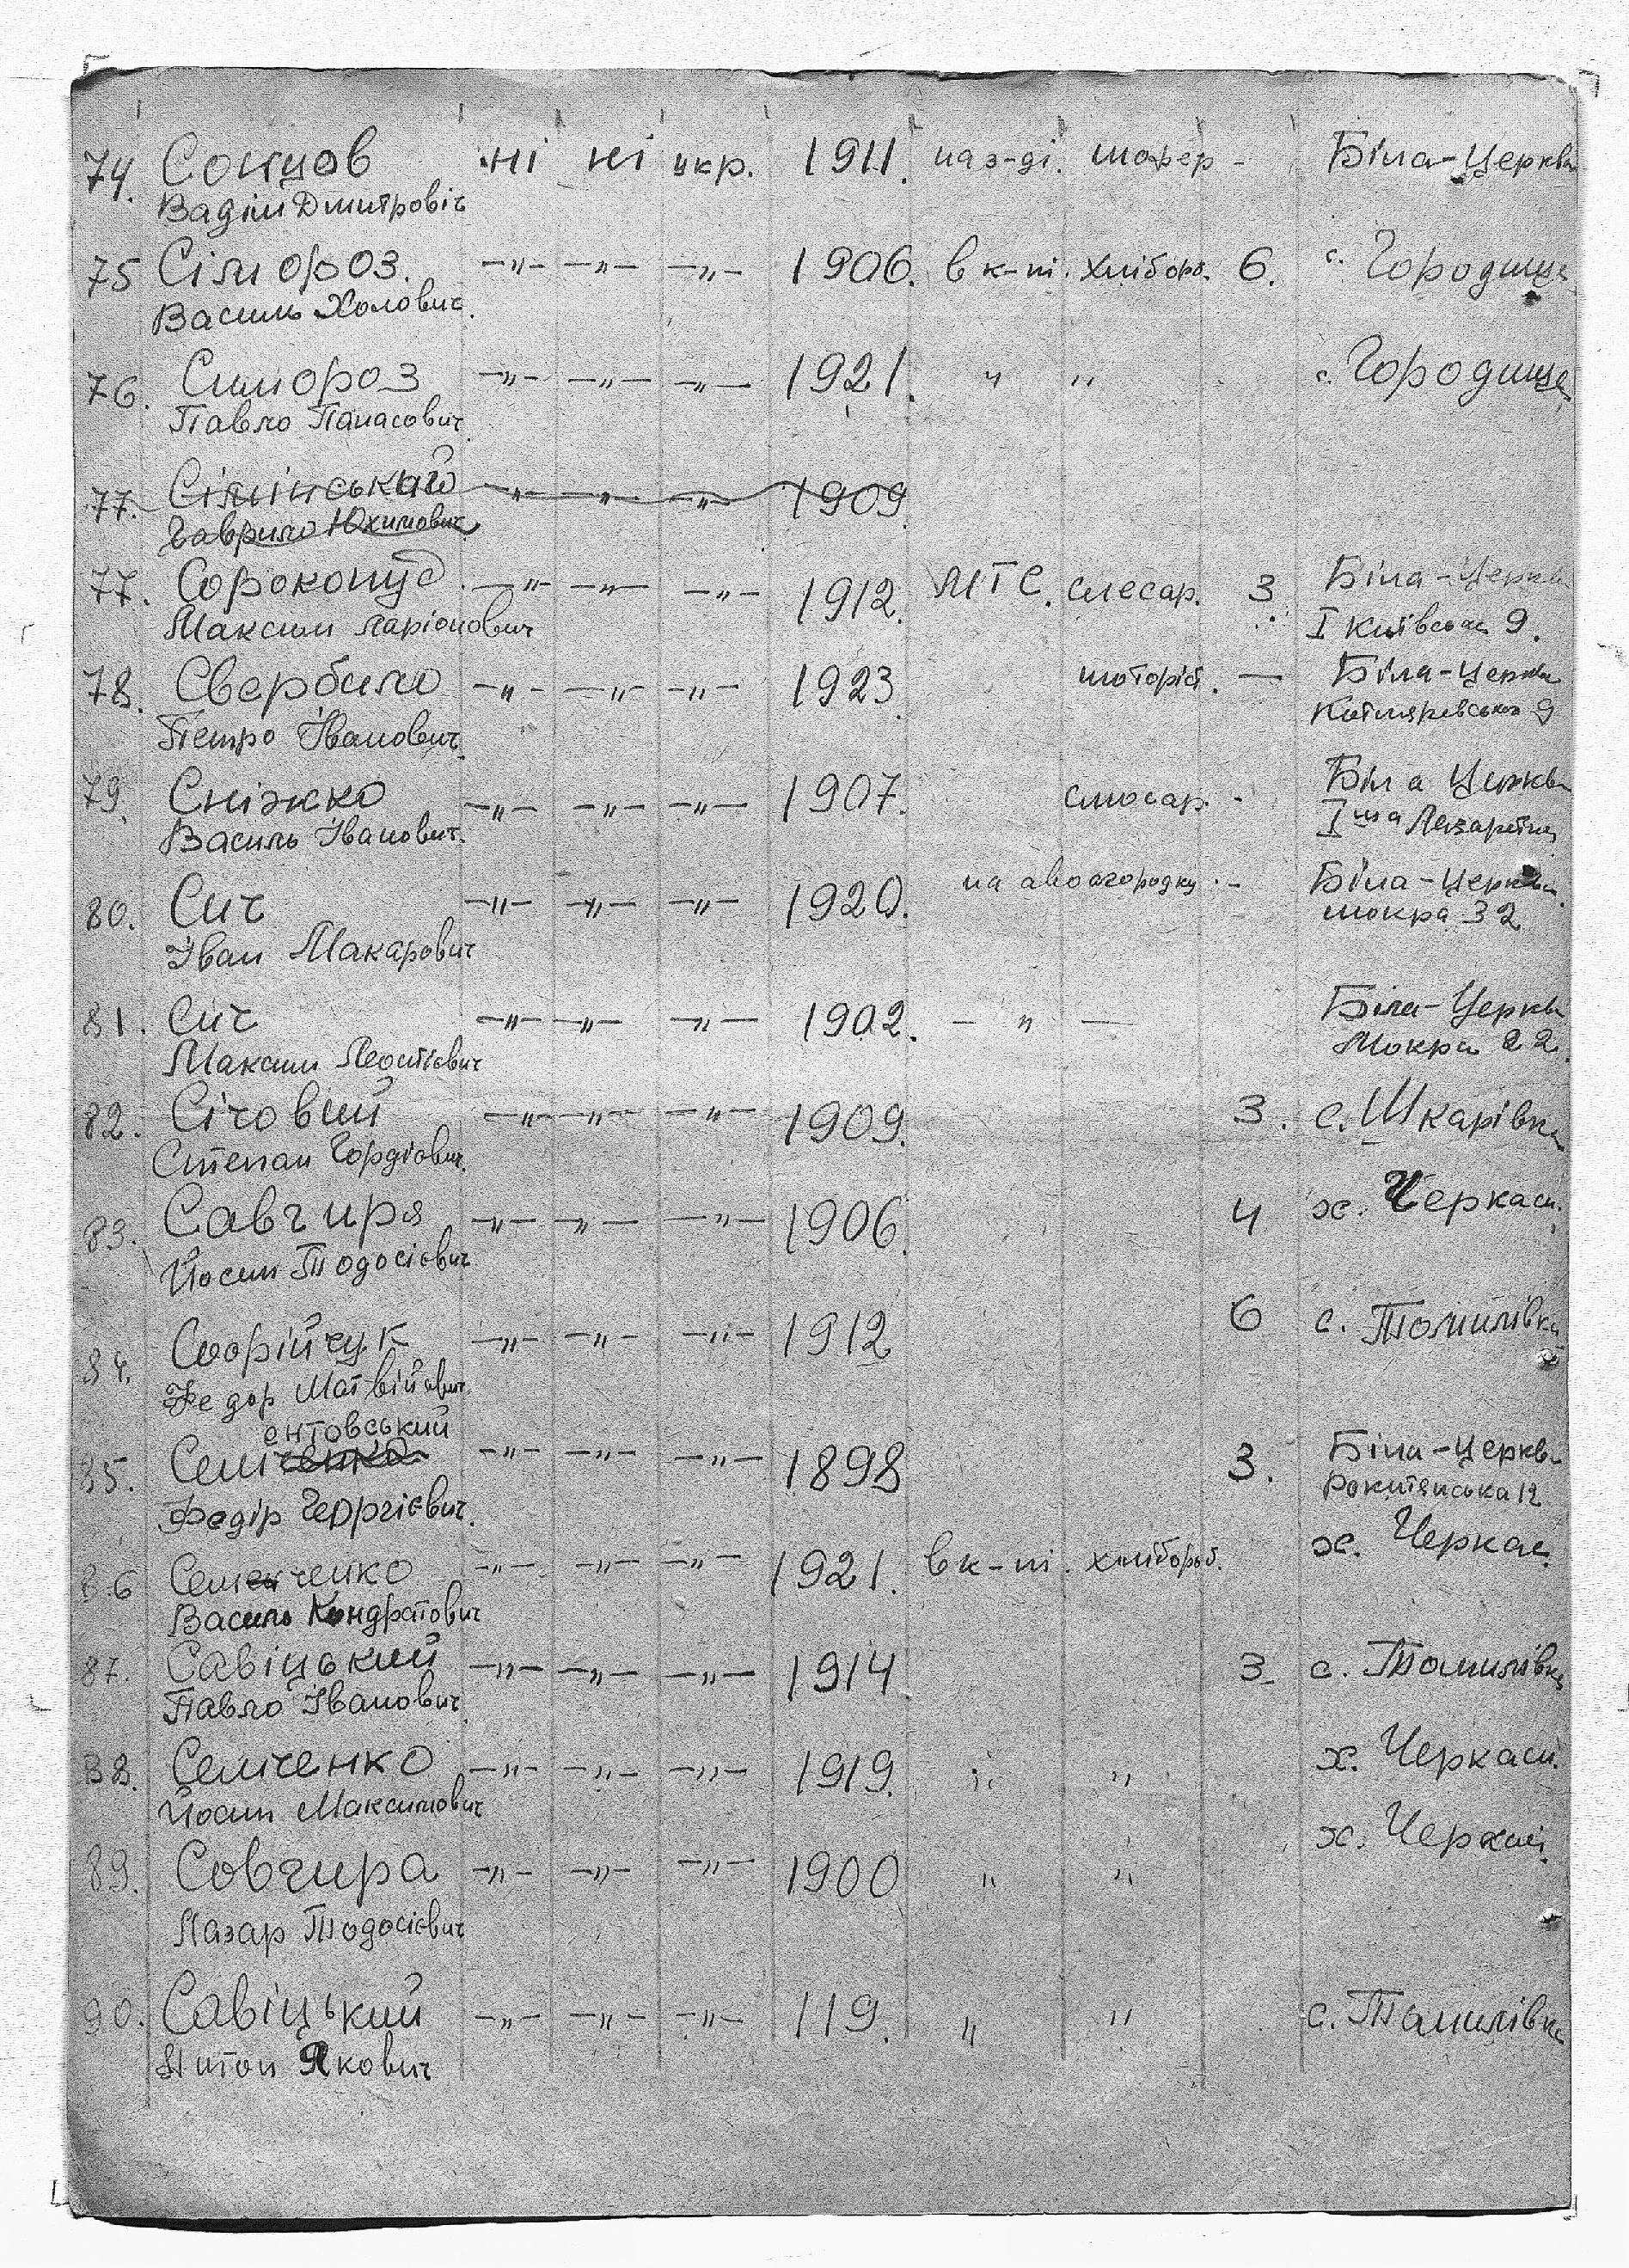 74. Сонцов ні ні укр. 1911. на з-ді. шофер - Біла-Церква
Вадім Дмитровіч
75 Сілмороз. -"- -"- -"- 1906. в к-пі. хлібороб. 6. с. Городище
Василь Холович.
76. Симороз -"- -"- -"- 1921. " " с. Городище
Павло Панасович
77. Сілінський -"- -"- -"- 1909.
Гаврило Юхимович
77. Сорокопуд -"- -"- -"- 1912. МТС. слесар. 3. Біла-Церква
Максим Ларіонович І Київська 9.
78. Свербило -"- -"- -"- 1923. моторіст. — Біла-Церква
Петро Іванович Котляревського 9
79. Сніжко -"- -"- -"- 1907. слюсар. - Біла Церква
Василь Іванович. Іша Лазаретна
80. Сич -"- -"- -"- 1920. на авогородку - Біла-Церква
мокра 32
Іван Макарович
81. Сич -"- -"- -"- 1902. - " - Біла-Церква
Максим Леонтієвич Мокра 22.
82. Січовий -"- -"- -"- 1909. 3. с. Шкарівка
Степан Гордієвич.
83. Савчиря -"- -"- -"- 1906. 4 х. Черкаси.
Йосип Тодосієвич
84. Софійчук -"- -"- -"- 1912 6 с. Томилівка
Федор Матвійович
ентовський
85. Семченко -"- -"- -"- 1898 3. Біла-Церква
Федір Георгієвич. Рокитянська 12
86 Семенченко -"- -"- -"- 1921. в к-пі. хлібороб. х. Черкас.
Василь Кондратович
87. Савіцький -"- -"- -"- 1914. 3 с. Томилівка
Павло Іванович
88. Семченко -"- -"- -"- 1919. " " х. Черкаси.
Йосип Максимович
89. Совчира -"- -"- -"- 1900 " " х. Черкаси.
Лазар Тодосієвич
90. Савіцький -"- -"- -"- 119. " " с. Томилівка
Антон Якович